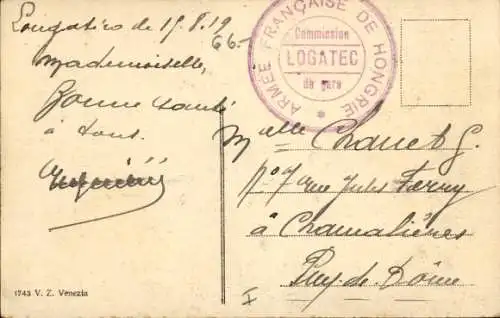 Longatico le 15.8.19
66-
Mademoiselle,
Bonne santé
à tous.
ARMÉE FRANÇAISE DE HONGRIE
Commission
LOGATEC
de gare
*
Melle Chanet G.
No 7 rue Jules Ferry
à Chamalières
Puy-de-Dôme
I
1743 V. Z. Venezia